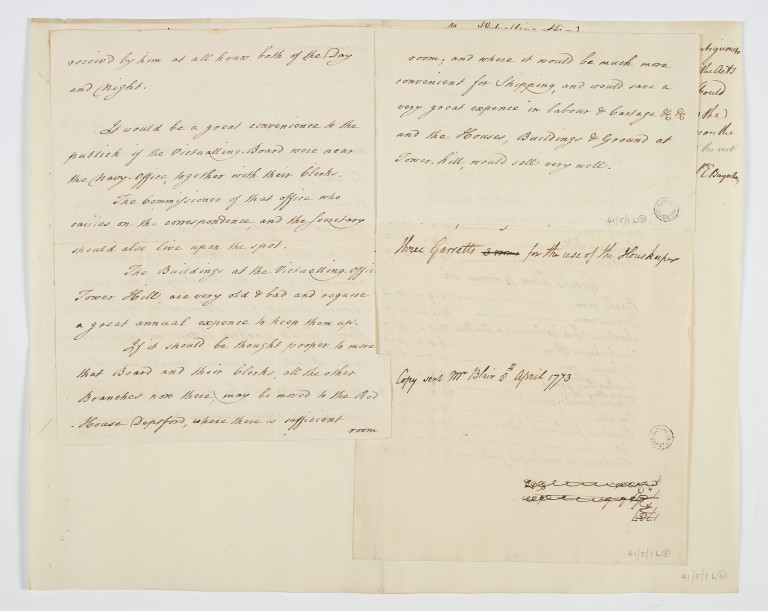 receiv'd by him at all hours both of the Day
and Night.
It would be a great convenience to the
publick if the Victualling Board were near
the Navy-Office, together with their Clerks.
The Commissioner of that office who
carries on the correspondence, and the Secretary
should also live upon the spot.
The Buildings at the Victualling Office
Tower Hill, are very old & bad and require
a great annual expence to keep them up.
If it should be thought proper to move
that Board and their Clerks, all the other
Branches now there, may be moved to the Red
-House Depford, where there is sufficient
room
room; and where it would be much more
convenient for Shipping, and would save a
very great expence in labour & Cartage &c &c
and the Houses, Buildings & Ground at
Tower-hill, would sell very well.
41/5/1 6
three Garretts for the use of the Houskeeper
Copy sent Mr Blair 8th April 1773
41/5/1 6
41/5/1 6
the Acts
the